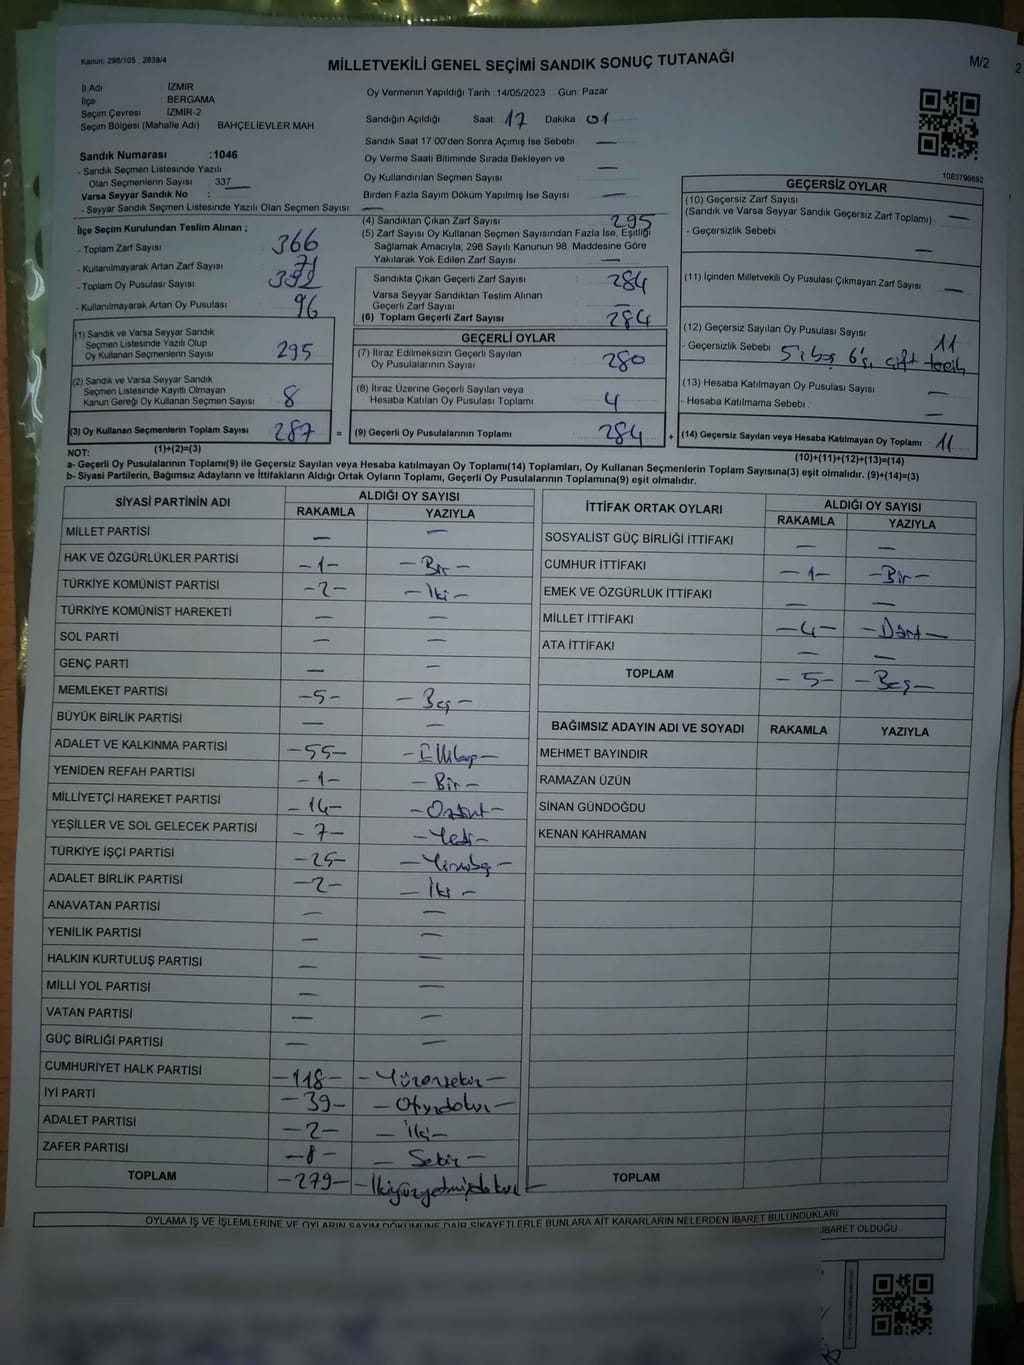 Kanun: 298/105 , 2839/4
MİLLETVEKİLİ GENEL SEÇİMİ SANDIK SONUÇ TUTANAĞI
M/2
2
İl Adı İZMİR
İlçe BERGAMA
Seçim Çevresi İZMİR-2
Seçim Bölgesi (Mahalle Adı) BAHÇELİEVLER MAH
Sandık Numarası :1046
- Sandık Seçmen Listesinde Yazılı
Olan Seçmenlerin Sayısı : 337
Varsa Seyyar Sandık No
- Seyyar Sandık Seçmen Listesinde Yazılı Olan Seçmen Sayısı: —
Oy Vermenin Yapıldığı Tarih :14/05/2023 Gün: Pazar
Sandığın Açıldığı Saat 17 Dakika 01
Sandık Saat 17:00'den Sonra Açımış İse Sebebi —
Oy Verme Saati Bitiminde Sırada Bekleyen ve
Oy Kullandırılan Seçmen Sayısı —
Birden Fazla Sayım Döküm Yapılmış İse Sayısı —
1083796692
İlçe Seçim Kurulundan Teslim Alınan ;
- Toplam Zarf Sayısı 366
- Kullanılmayarak Artan Zarf Sayısı 71
- Toplam Oy Pusulası Sayısı
- Kullanılmayarak Artan Oy Pusulası 96
(1) Sandık ve Varsa Seyyar Sandık
Seçmen Listesinde Yazılı Olup
Oy Kullanan Seçmenlerin Sayısı 295
(2) Sandık ve Varsa Seyyar Sandık
Seçmen Listesinde Kayıtlı Olmayan
Kanun Gereği Oy Kullanan Seçmen Sayısı 8
(3) Oy Kullanan Seçmenlerin Toplam Sayısı 287 =
(1)+(2)=(3)
(4) Sandıktan Çıkan Zarf Sayısı 295
(5) Zarf Sayısı Oy Kullanan Seçmen Sayısından Fazla İse, Eşitliği
Sağlamak Amacıyla, 298 Sayılı Kanunun 98. Maddesine Göre
Yakılarak Yok Edilen Zarf Sayısı —
Sandıkta Çıkan Geçerli Zarf Sayısı 284
Varsa Seyyar Sandıktan Teslim Alınan
Geçerli Zarf Sayısı —
(6) Toplam Geçerli Zarf Sayısı 284
GEÇERLİ OYLAR
(7) İtiraz Edilmeksizin Geçerli Sayılan
Oy Pusulalarının Sayısı 280
(8) İtiraz Üzerine Geçerli Sayılan veya
Hesaba Katılan Oy Pusulası Toplamı 4
(9) Geçerli Oy Pusulalarının Toplamı 284 +
GEÇERSİZ OYLAR
(10) Geçersiz Zarf Sayısı
(Sandık ve Varsa Seyyar Sandık Geçersiz Zarf Toplamı) —
- Geçersizlik Sebebi —
(11) İçinden Milletvekili Oy Pusulası Çıkmayan Zarf Sayısı —
(12) Geçersiz Sayılan Oy Pusulası Sayısı 11
- Geçersizlik Sebebi 5'i boş 6'sı çift tercih
(13) Hesaba Katılmayan Oy Pusulası Sayısı —
- Hesaba Katılmama Sebebi : —
(14) Geçersiz Sayılan veya Hesaba Katılmayan Oy Toplamı 11
(10)+(11)+(12)+(13)=(14)
NOT:
a- Geçerli Oy Pusulalarının Toplamı(9) ile Geçersiz Sayılan veya Hesaba katılmayan Oy Toplamı(14) Toplamları, Oy Kullanan Seçmenlerin Toplam Sayısına(3) eşit olmalıdır. (9)+(14)=(3)
b- Siyasi Partilerin, Bağımsız Adayların ve İttifakların Aldığı Ortak Oyların Toplamı, Geçerli Oy Pusulalarının Toplamına(9) eşit olmalıdır.
SİYASİ PARTİNİN ADI ALDIĞI OY SAYISI
RAKAMLA YAZIYLA
MİLLET PARTİSİ — —
HAK VE ÖZGÜRLÜKLER PARTİSİ -1- -Bir-
TÜRKİYE KOMÜNİST PARTİSİ -2- -İki-
TÜRKİYE KOMÜNİST HAREKETİ — —
SOL PARTİ — —
GENÇ PARTİ — —
MEMLEKET PARTİSİ -5- -Beş-
BÜYÜK BİRLİK PARTİSİ — —
ADALET VE KALKINMA PARTİSİ -55- -Ellibeş-
YENİDEN REFAH PARTİSİ -1- -Bir-
MİLLİYETÇİ HAREKET PARTİSİ -14- -Ondört-
YEŞİLLER VE SOL GELECEK PARTİSİ -7- -Yedi-
TÜRKİYE İŞÇİ PARTİSİ -25- -Yirmibeş-
ADALET BİRLİK PARTİSİ -2- -İki-
ANAVATAN PARTİSİ — —
YENİLİK PARTİSİ — —
HALKIN KURTULUŞ PARTİSİ — —
MİLLİ YOL PARTİSİ — —
VATAN PARTİSİ — —
GÜÇ BİRLİĞİ PARTİSİ — —
CUMHURİYET HALK PARTİSİ -118- -Yüzonsekiz-
İYİ PARTİ -39- -Otuzdokuz-
ADALET PARTİSİ -2- -İki-
ZAFER PARTİSİ -8- -Sekiz-
TOPLAM -279- -İkiyüzyetmişdokuz-
İTTİFAK ORTAK OYLARI ALDIĞI OY SAYISI
RAKAMLA YAZIYLA
SOSYALİST GÜÇ BİRLİĞİ İTTİFAKI — —
CUMHUR İTTİFAKI -1- -Bir-
EMEK VE ÖZGÜRLÜK İTTİFAKI — —
MİLLET İTTİFAKI -4- -Dört-
ATA İTTİFAKI — —
TOPLAM -5- -Beş-
BAĞIMSIZ ADAYIN ADI VE SOYADI RAKAMLA YAZIYLA
MEHMET BAYINDIR
RAMAZAN ÜZÜN
SİNAN GÜNDOĞDU
KENAN KAHRAMAN
TOPLAM
OYLAMA İŞ VE İŞLEMLERİNE VE OYLARIN SAYIM DÖKÜMÜNE DAİR ŞİKAYETLERLE BUNLARA AİT KARARLARIN NELERDEN İBARET BULUNDUKLARI
İBARET OLDUĞU